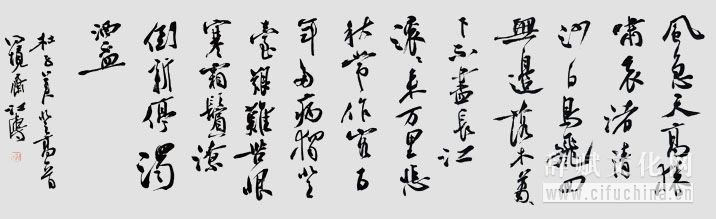 風急天高猿
嘯哀渚清
沙白鳥飛回
無邊落木蕭
下不盡長江
滚滚来万里悲
秋常作客百
年多病獨登
臺艱難苦恨
寒霜鬢潦
倒新停濁
酒盃
杜子美登高
辞赋文化网
www.cifuchina.com